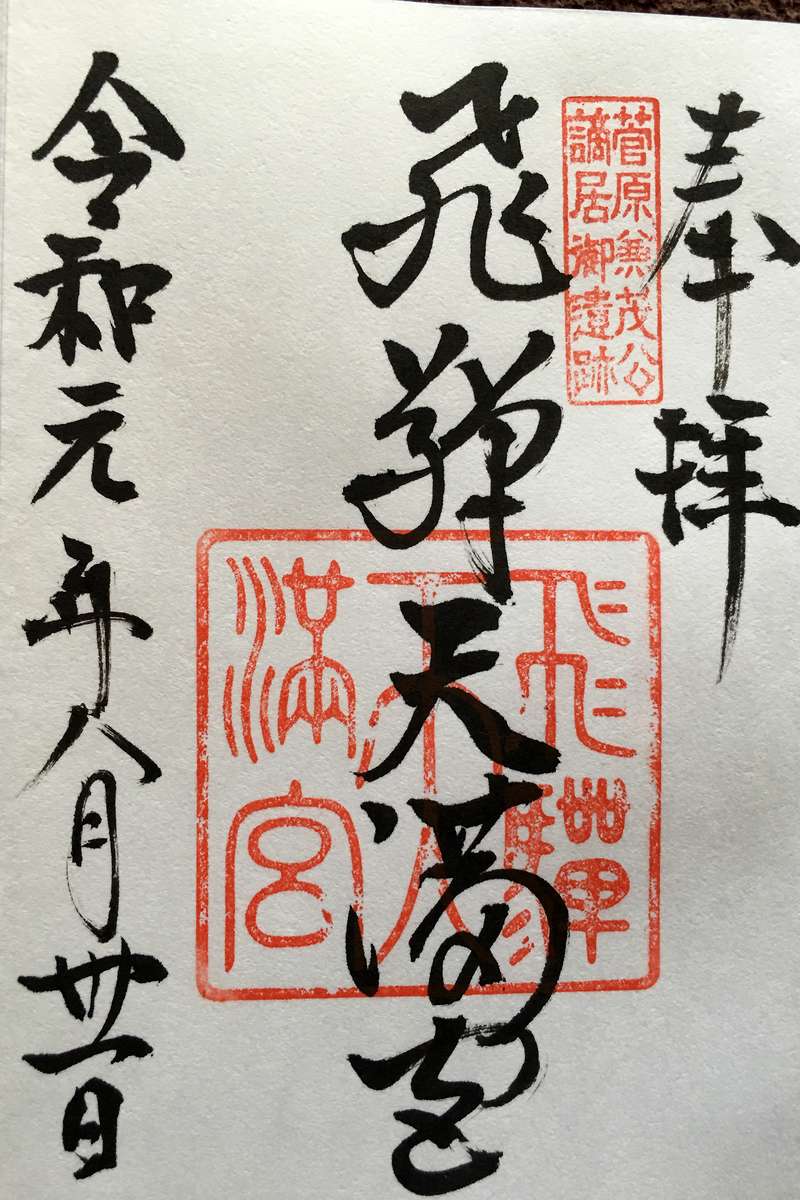 奉拝
菅原兼茂公
謫居御遺跡
飛騨天満宮
飛驒
天
滿宮
令和元年八月卅一日